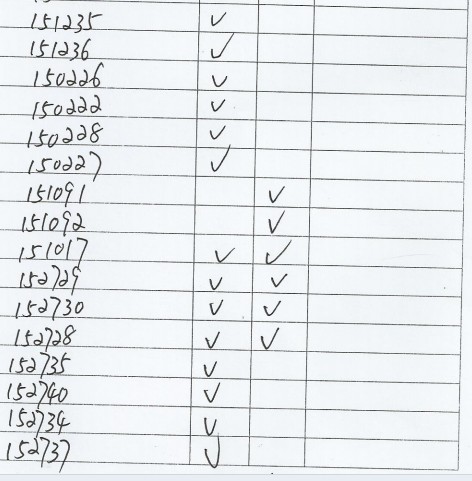 151235 ✓
151236 ✓
150226 ✓
150222 ✓
150228 ✓
150227 ✓
151091 ✓
151092 ✓
151017 ✓ ✓
152729 ✓ ✓
152730 ✓ ✓
152728 ✓ ✓
152735 ✓
152740 ✓
152734 ✓
152737 ✓